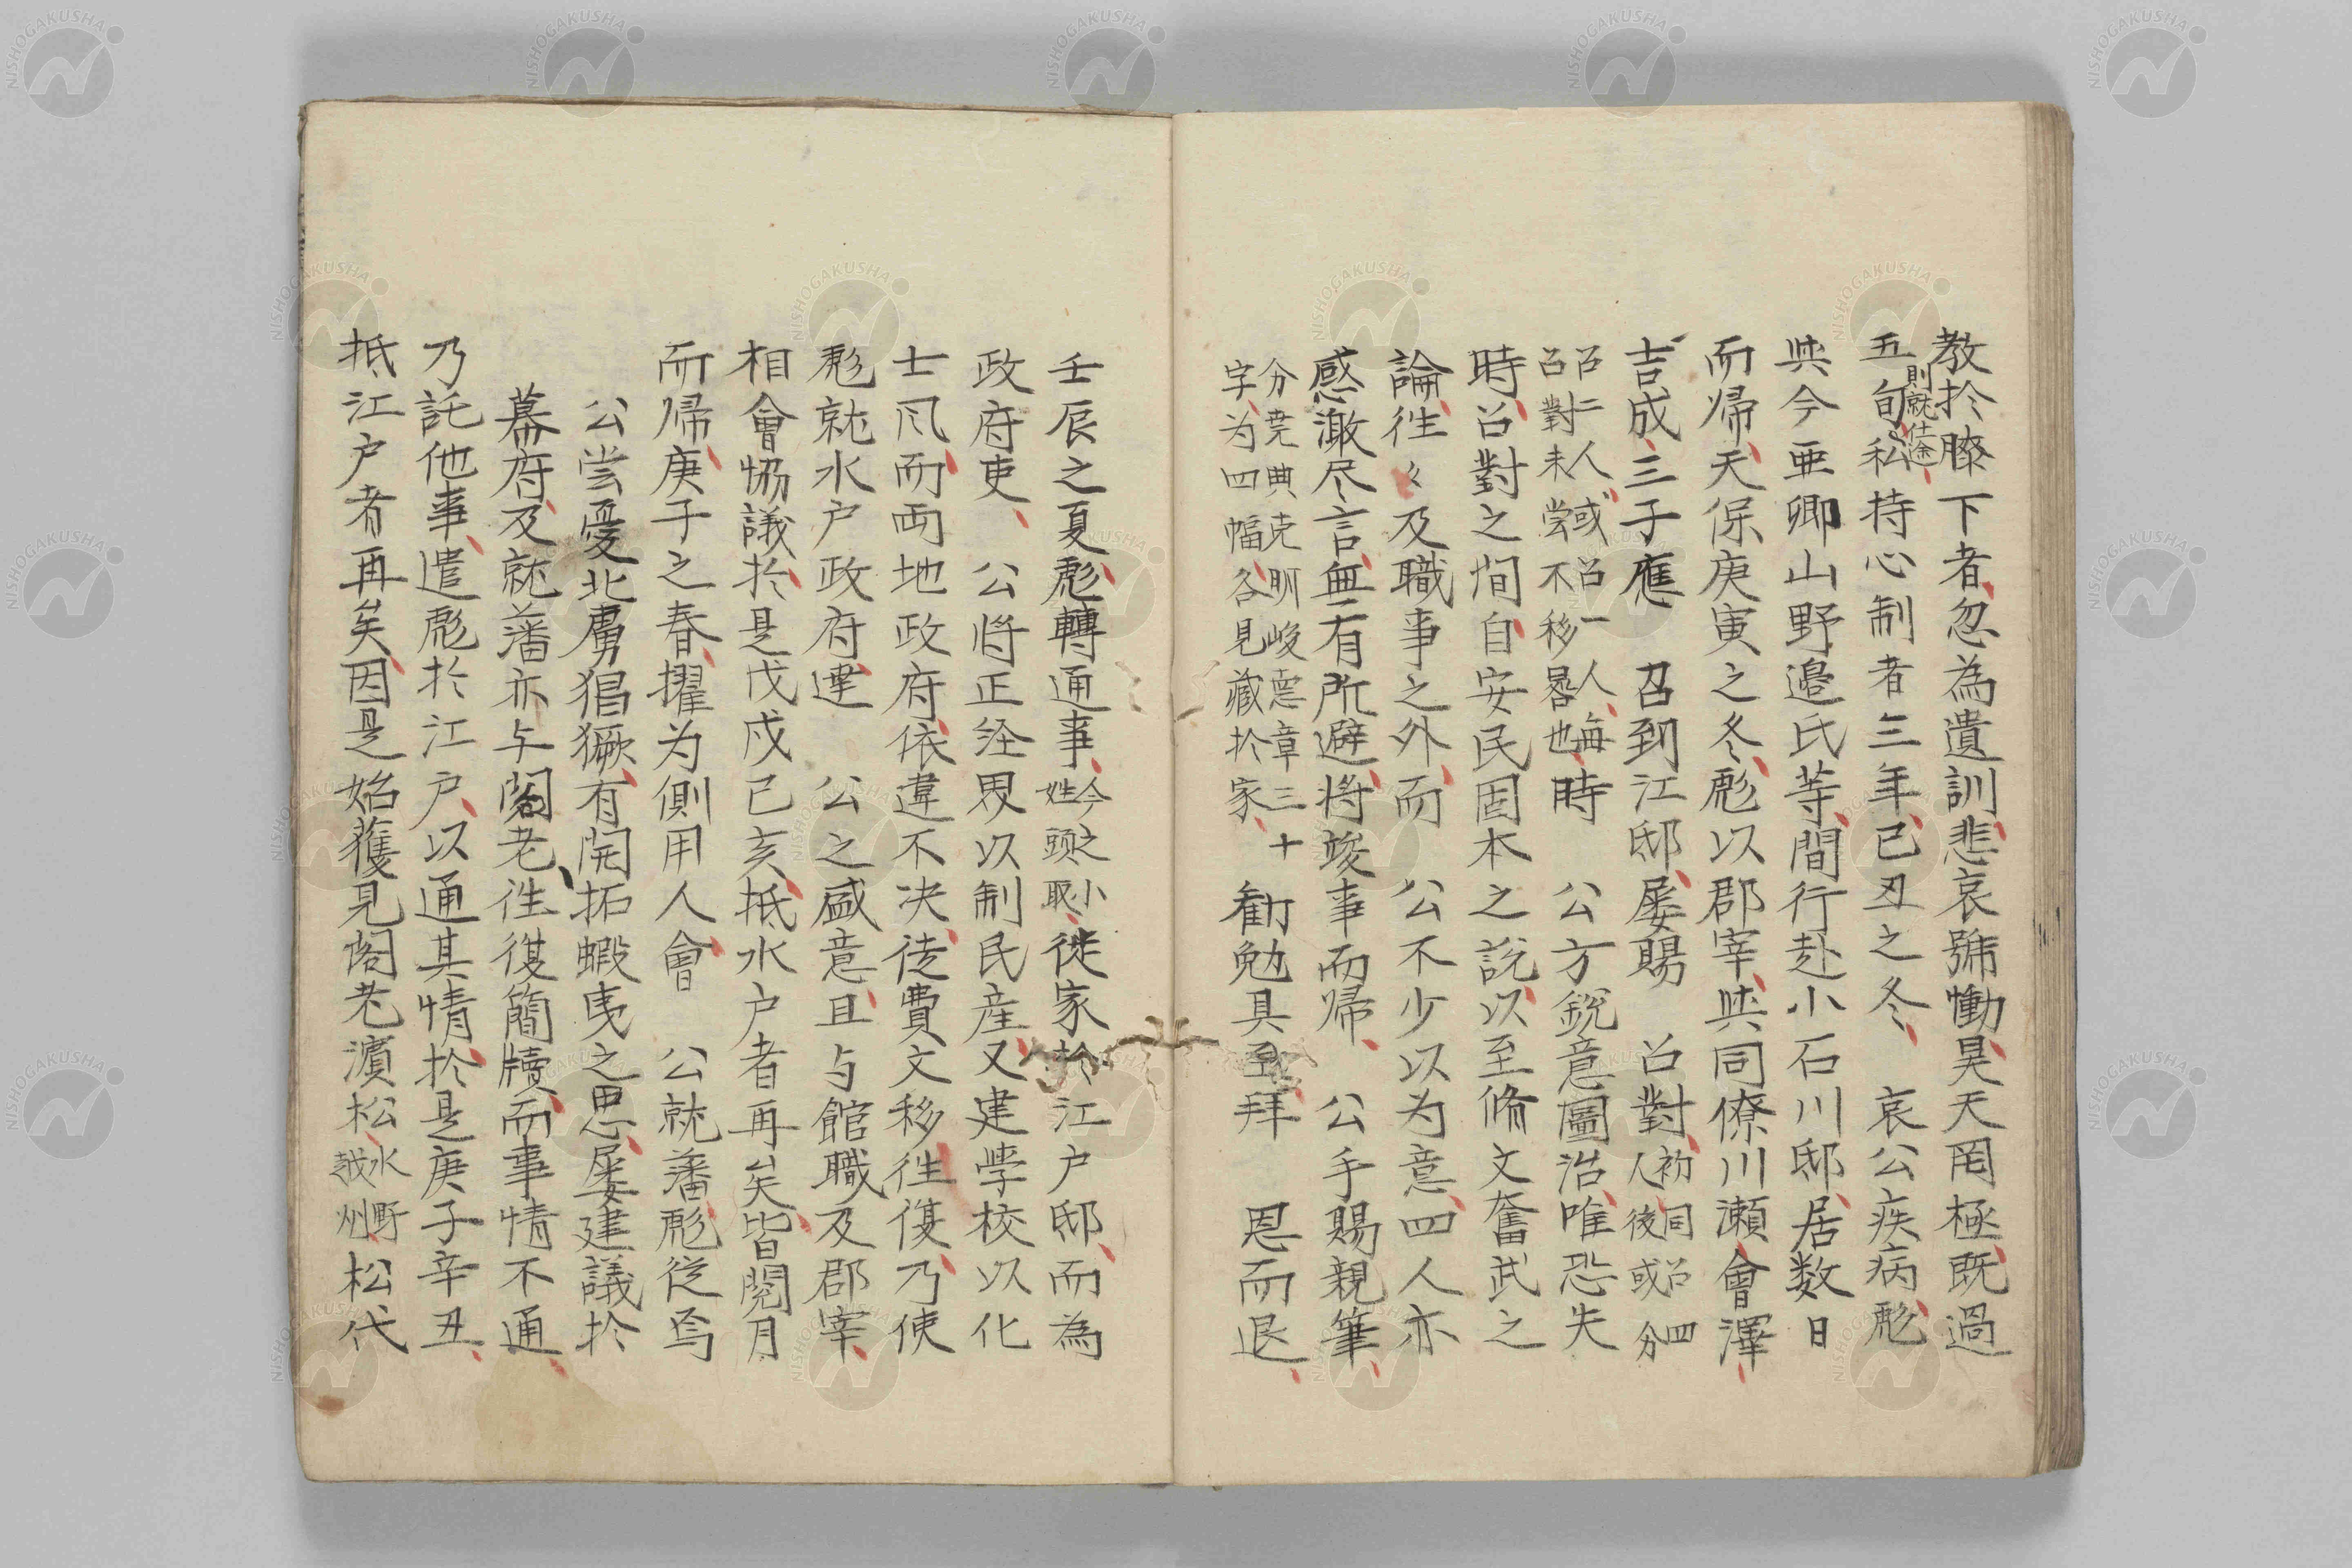 教於膝下者忽為遺訓悲哀號慟昊天罔極既過
五旬則就仕途私持心制者三年已丑之冬　哀公疾病彪
與今亜卿山野邉氏等間行赴小石川邸居数日
而帰天保庚寅之冬彪以郡宰與同僚川瀬會澤
吉成三子應　召到江邸屡賜　召對初同召四人後或分
召二人或召一人毎召對未嘗不移晷也時　公方鋭意圖治唯恐失
時召對之間自安民固本之説以至脩文奮武之
論徃々及職事之外而　公不少以为意四人亦
感激尽言無有所避将竣事而帰　公手賜親筆
分尭典克明峻悳章三十字为四幅各見藏於家　勧勉具至拜　恩而退
壬辰之夏彪轉通事今之小姓頭取徙家於江戸邸而為
政府吏　公将正経界以制民産又建学校以化
士風而両地政府依違不决徒費文移徃復乃使
彪就水戸政府達　公之盛意且与館職及郡宰
相會協議於是戊戌己亥抵水戸者再矣皆閲月
而帰庚子之春擢为側用人會　公就藩彪従焉
公嘗憂北虜猖獗有開拓蝦夷之思屡建議於
幕府及就藩亦与閣老徃復簡牘而事情不通
乃託他事遣彪於江戸以通其情於是庚子辛丑
抵江戸者再矣因是始獲見閣老濱松水野越州松代